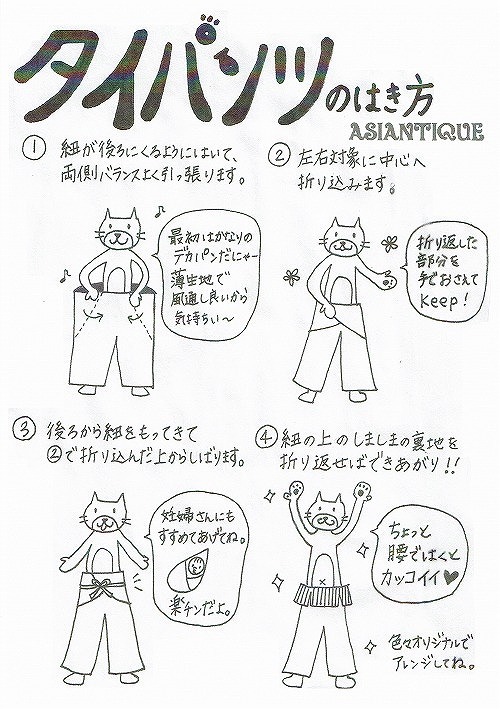 タイパンツのはき方
ASIANTIQUE
① 紐が後ろにくるようにはいて、
両側バランスよく引っ張ります。
最初はかなりの
デカパンだにゃー
薄生地で
風通し良いから
気持ちい〜
② 左右対象に中心へ
折り込みます。
折り返した
部分を
手でおさえて
Keep!
③ 後ろから紐をもってきて
②で折り込んだ上からしばります。
妊婦さんにも
すすめてあげてね。
楽チンだよ。
④ 紐の上のしましまの裏地を
折り返せばできあがり!!
ちょっと
腰ではくと
カッコイイ♥
色々オリジナルで
アレンジしてね。